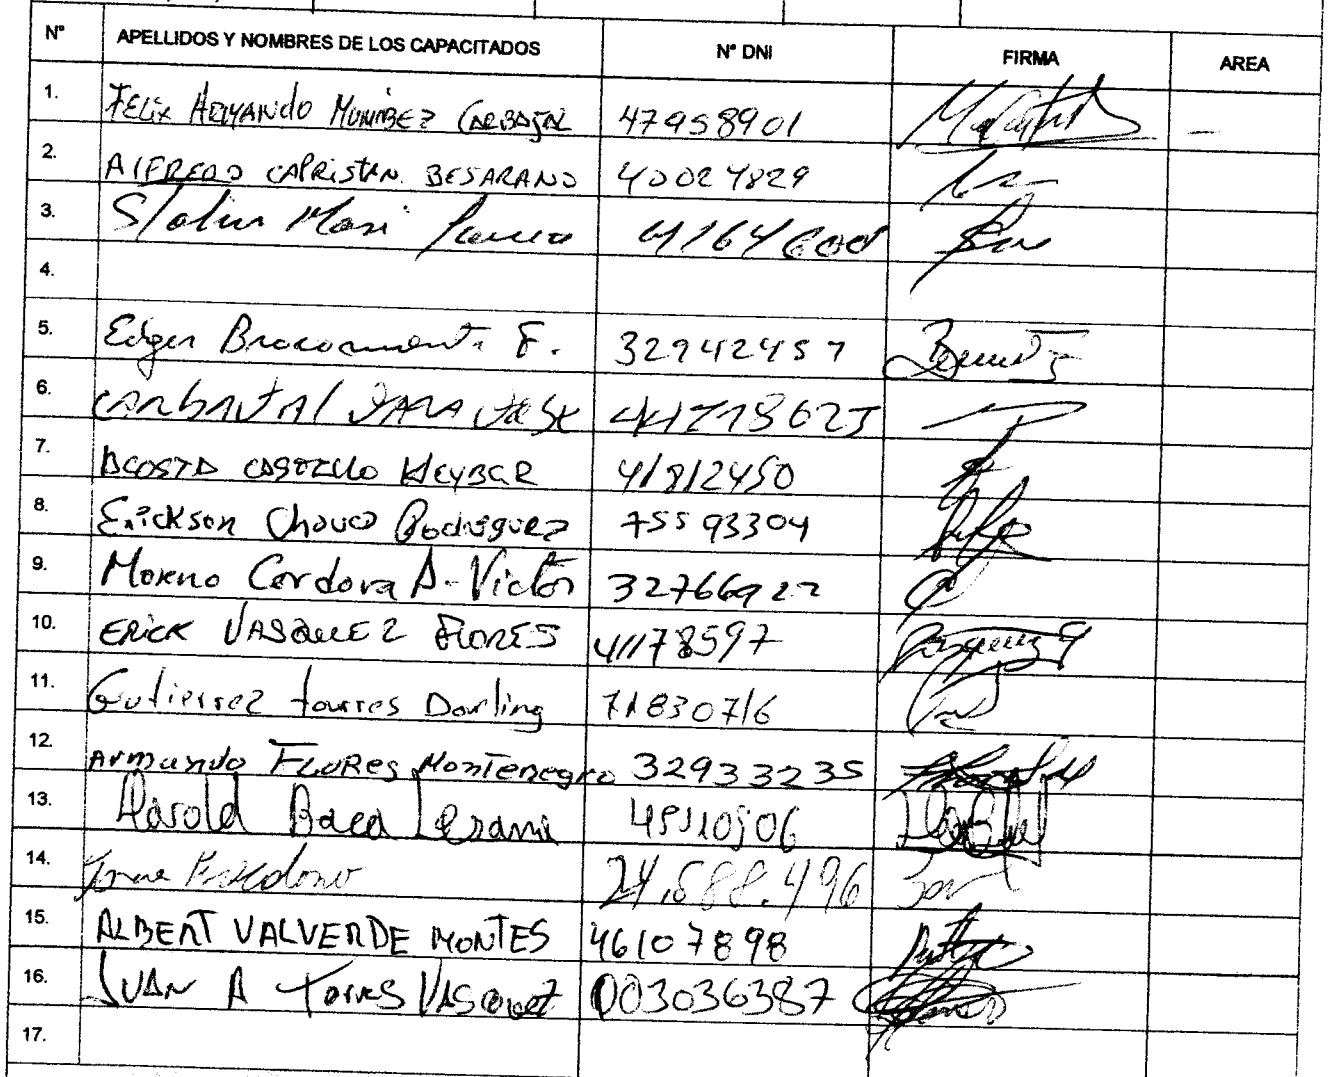 N° APELLIDOS Y NOMBRES DE LOS CAPACITADOS N° DNI FIRMA AREA
1. FELIX ARMANDO CARBAJAL 47958901 —
2. ALFREDO CAPRISTAN. BESARANO 40024829
3. Stalin
4.
5. Edger 32942457
6. CARBAJAL JARA JOSE 44718623
7. ACOSTA CASTILLO HEYBER 41812450
8. Erickson Chauca Rodriguez 75593304
9. Moreno Cordova A. Victor 32766922
10. ERICK VASQUEZ FLORES 41178597
11. Gutierrez torres Darling 71830716
12. Armando FLORES Montenegro 32933235
13. Harold Baca
14. 24.688.496
15. ALBERT VALVERDE MONTES 46107898
16. JUAN A TORRES VASQUEZ 003036387
17.